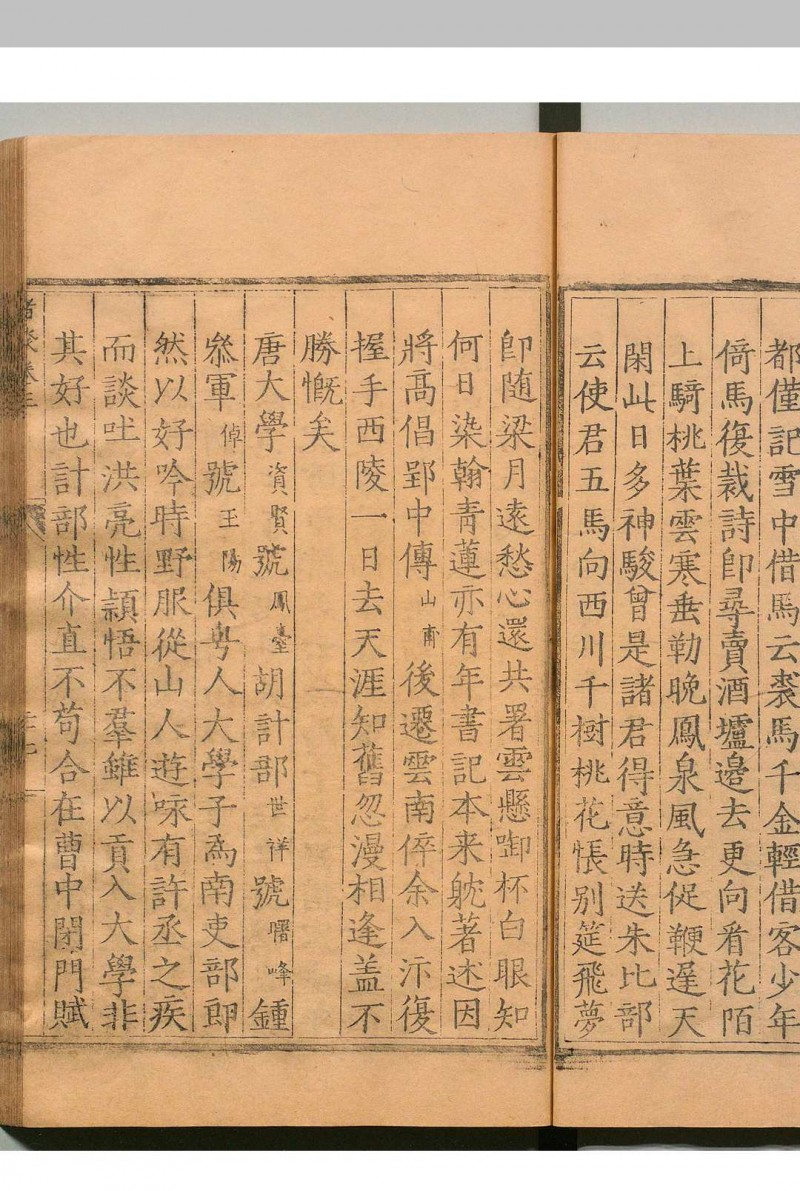 都僅記雪中借馬云裘馬千金輕借客少年
倚馬復裁詩卽尋賣酒壚邊去更向看花陌
上騎桃葉雲寒垂勒晚鳳泉風急促鞭遲天
閑此日多神駿曾是諸君得意時送朱比部
云使君五馬向西川千樹桃花悵别筵飛夢
卽随梁月遠愁心還共署雲懸啣杯白眼知
何日染翰青蓮亦有年書記本来躭著述因
將髙倡郢中傳山甫後遷雲南倅余入汴復
握手西陵一日去天涯知舊忽漫相逢盖不
勝慨矣
唐大學資賢號鳳臺胡計部世祥號曙峰鍾
叅軍倬號王陽俱粤人大學子為南吏部郎
然以好吟時野服從山人遊咏有許丞之疾
而談吐洪亮性頴悟不羣雖以貢入大學非
其好也計部性介直不苟合在曹中閉門賦